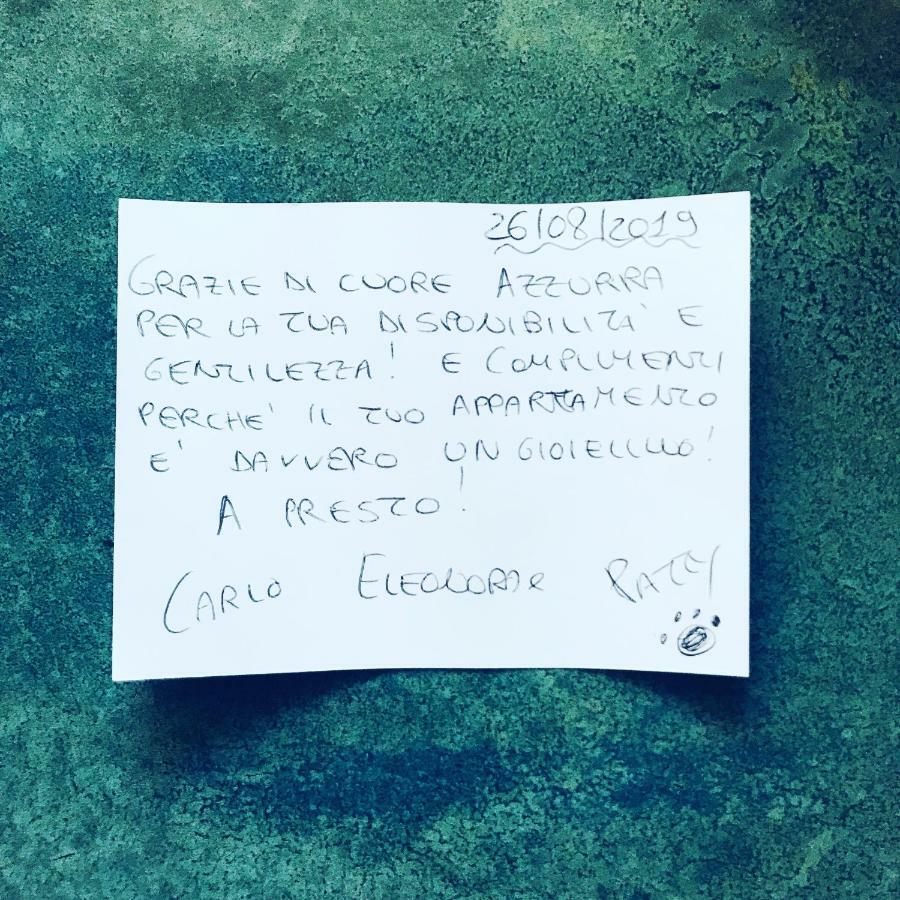 26/08/2019
GRAZIE DI CUORE AZZURRA
PER LA TUA DISPONIBILITA' E
GENTILEZZA! E COMPLIMENTI
PERCHE' IL TUO APPARTAMENTO
E' DAVVERO UN GIOIELLINO!
A PRESTO!
CARLO ELEONORA PATTY